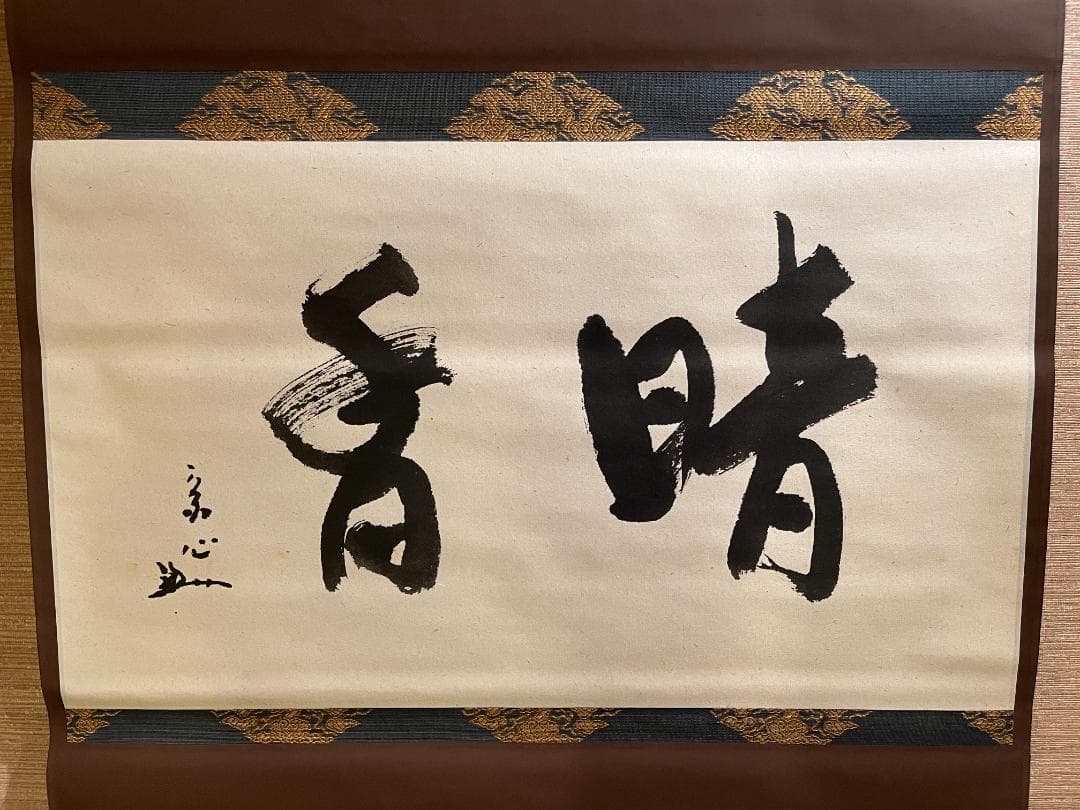 晴香
宗心